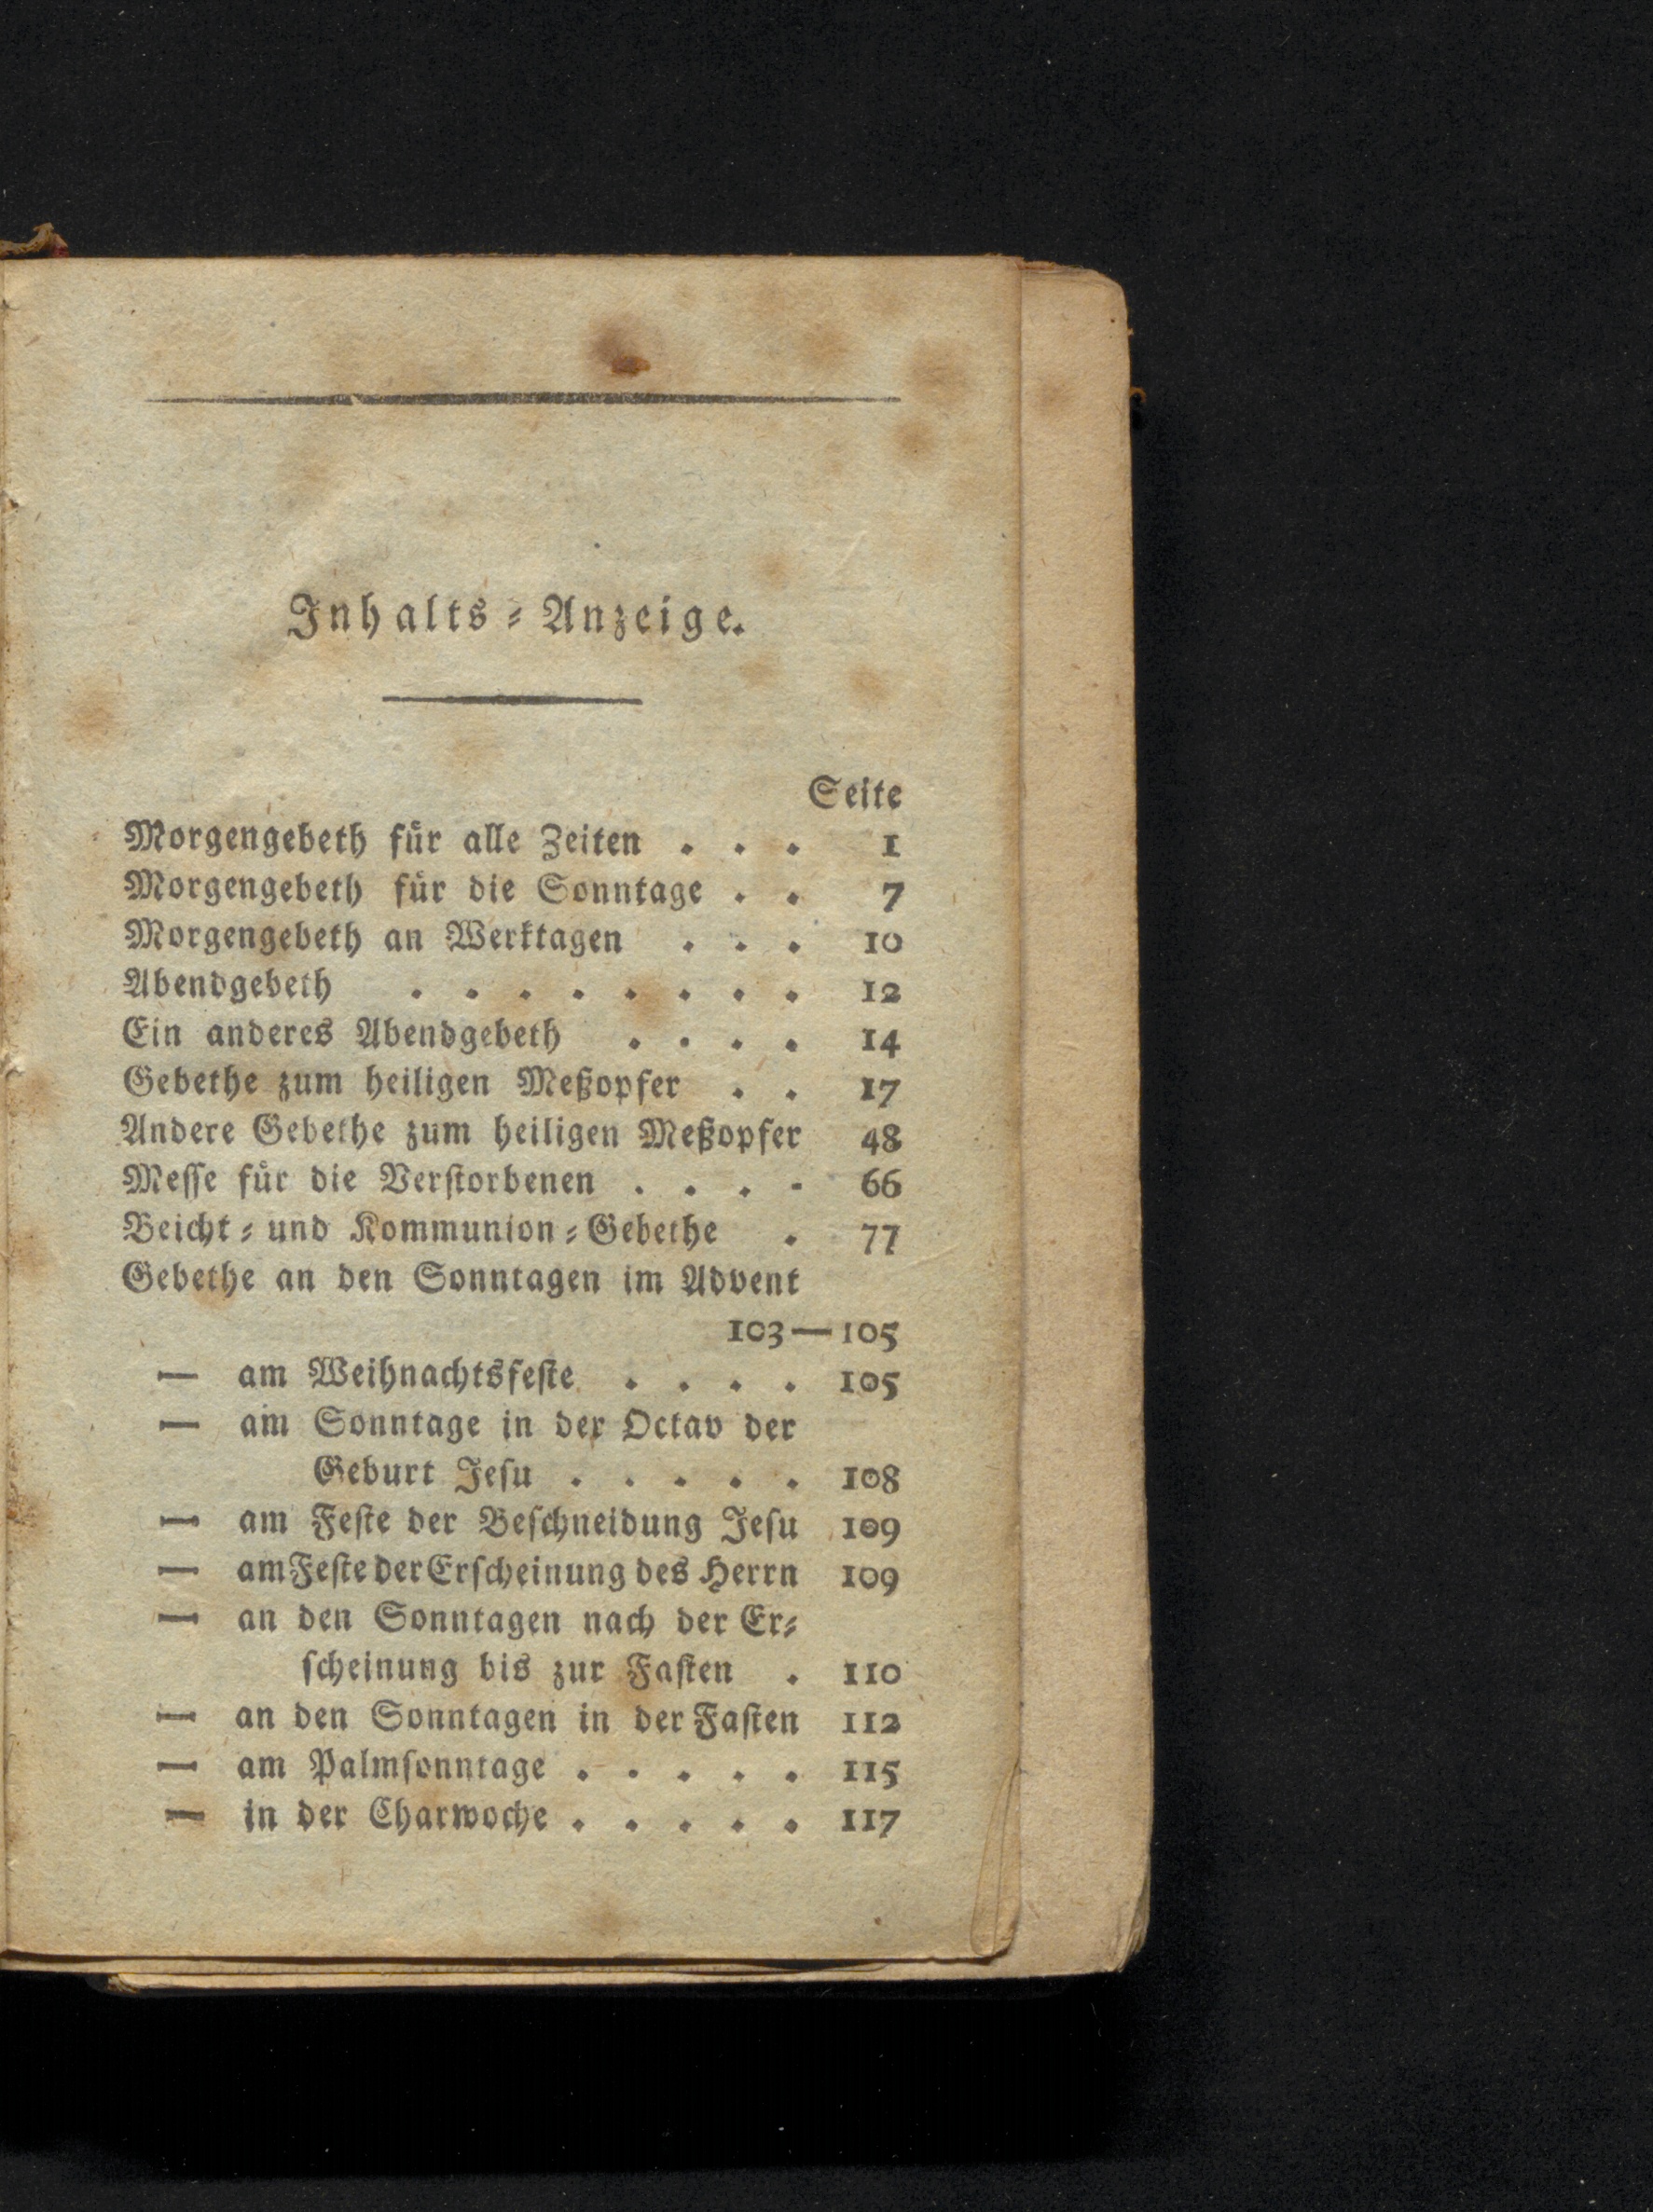 Inhalts-Anzeige.
Seite
Morgengebeth für alle Zeiten . . . 1
Morgengebeth für die Sonntage . . 7
Morgengebeth an Werktagen . . . 10
Abendgebeth . . . . . . . . 12
Ein anderes Abendgebeth . . . . 14
Gebethe zum heiligen Meßopfer . . 17
Andere Gebethe zum heiligen Meßopfer 48
Messe für die Verstorbenen . . . . 66
Beicht- und Kommunion-Gebethe . 77
Gebethe an den Sonntagen im Advent
103—105
— am Weihnachtsfeste . . . . 105
— am Sonntage in der Octav der
Geburt Jesu . . . . . 108
— am Feste der Beschneidung Jesu 109
— am Feste der Erscheinung des Herrn 109
— an den Sonntagen nach der Er-
scheinung bis zur Fasten . 110
— an den Sonntagen in der Fasten 112
— am Palmsonntage . . . . . 115
— in der Charwoche . . . . . 117